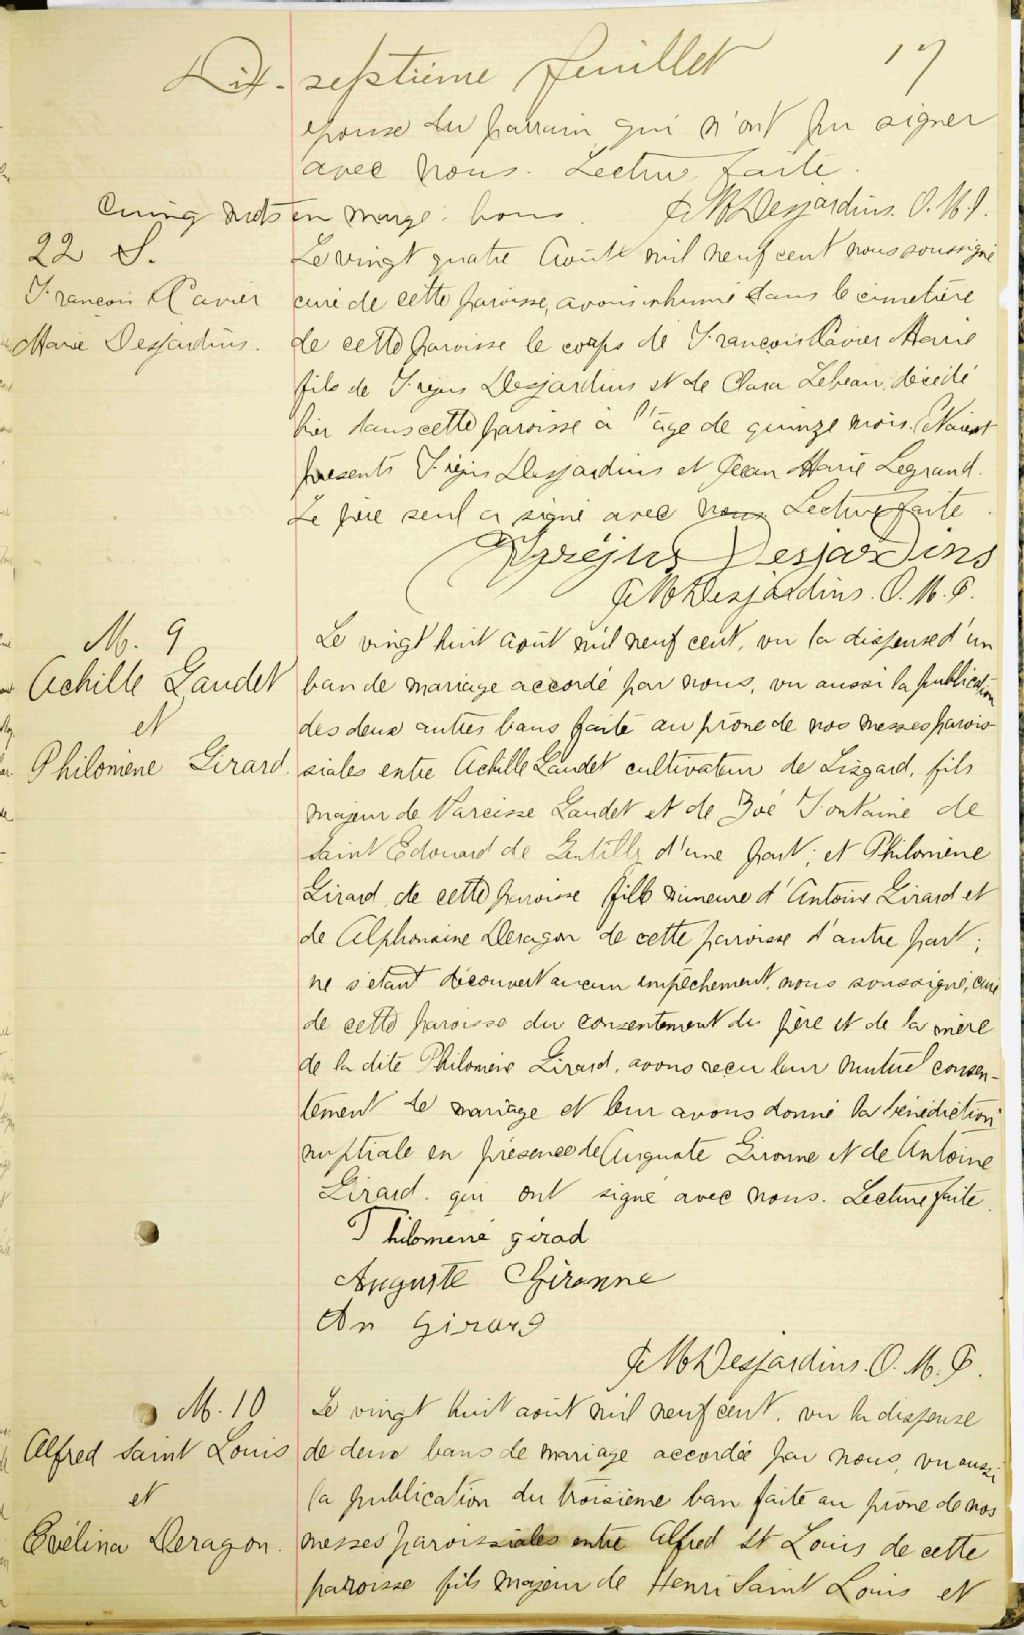 Dix-septième feuillet 17
epouse du parrain qui n'ont pu signer
avec nous. Lecture faite.
Cinq mots en marge: bons. J M Desjardins. O.M.I.
22 S.
François Xavier
Marie Desjardins.
Le vingt quatre Août mil neuf cent nous soussigné
curé de cette paroisse, avons inhumé dans le cimetière
de cette paroisse le corps de François Xavier Marie
fils de Fréjus Desjardins et de Clara Lebeau, décédé
hier dans cette paroisse à l'âge de quinze mois. Etaient
présents Fréjus Desjardins et Jean Marie Legrand.
Le père seul a signé avec nous Lecture faite.
Fréjus Desjardins
J M Desjardins. O.M.I.
M. 9
Achille Gaudet
et
Philomène Girard.
Le vingt huit août mil neuf cent, vu la dispense d'un
ban de mariage accordé par nous, vu aussi la publication
des deux autres bans faite au prône de nos messes parois-
siales entre Achille Gaudet cultivateur de Lisgard, fils
majeur de Narcisse Gaudet et de Zoé Fontaine de
Saint Edouard de Gentilly d'une part; et Philomène
Girard de cette paroisse fille mineure d'Antoine Girard et
de Alphonsine Deragon de cette paroisse d'autre part;
ne s'étant découvert aucun empêchement, nous soussigné, curé
de cette paroisse du consentement du père et de la mère
de la dite Philomène Girard, avons reçu leur mutuel consen-
tement de mariage et leur avons donné la bénédiction
nuptiale en présence de Auguste Gironne et de Antoine
Girard. qui ont signé avec nous. Lecture faite.
Philomène girad
Auguste Gironne
An Girard
J M Desjardins. O.M.I.
M. 10
Alfred Saint Louis
et
Evélina Deragon.
Le vingt huit août mil neuf cent, vu la dispense
de deux bans de mariage accordée par nous, vu aussi
la publication du troisième ban faite au prône de nos
messes paroissiales entre Alfred St Louis de cette
paroisse fils majeur de Henri Saint Louis et